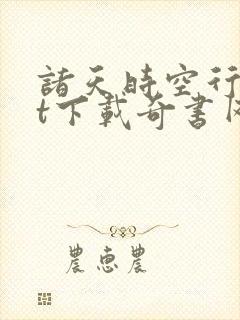 諸天時空行
t下載奇書网
農惠農